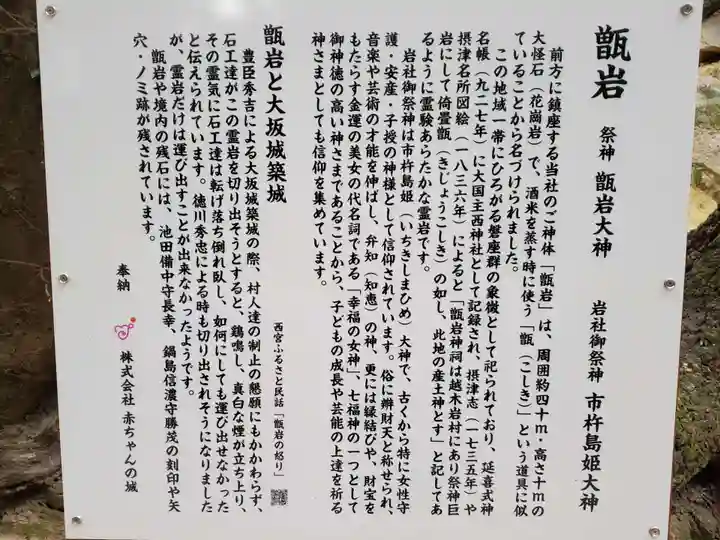 甑岩 祭神 甑岩大神 岩社御祭神 市杵島姫大神
前方に鎮座する当社のご神体「甑岩」は、周囲約四十m・高さ十mの
大怪石（花崗岩）で、酒米を蒸す時に使う「甑（こしき）」という道具に似
ていることから名づけられました。
この地域一帯にひろがる磐座群の象徴として祀られており、延喜式神
名帳（九二七年）に大国主西神社として記録され、摂津志（一七三五年）や
摂津名所図絵（一八三六年）によると「甑岩神祠は越木岩村にあり祭神巨
岩にして倚疊甑（きじょうこしき）の如し、此地の産土神とす」と記してあ
るように霊験あらたかな霊岩です。
岩社御祭神は市杵島姫（いちきしまひめ）大神で、古くから特に女性守
護・安産・子授の神様として信仰されています。俗に辨財天と称せられ、
音楽や芸術の才能を伸ばし、弁知（知恵）の神、更には縁結びや、財宝を
もたらす金運の美女の代名詞である「幸福の女神」、七福神の一つとして
御神徳の高い神さまであることから、子どもの成長や芸能の上達を祈る
神さまとしても信仰を集めています。
甑岩と大坂城築城
西宮ふるさと民話「甑岩の怒り」
豊臣秀吉による大坂城築城の際、村人達の制止の懇願にもかかわらず、
石工達がこの霊岩を切り出そうとすると、鶏鳴し、真白な煙が立ち上り、
その霊気に石工達は転げ落ち倒れ臥し、如何にしても運び出せなかった
と伝えられています。徳川秀忠による時も切り出されそうになりました
が、霊岩だけは運び出すことが出来なかったようです。
甑岩や境内の残石には、池田備中守長幸、鍋島信濃守勝茂の刻印や矢
穴・ノミ跡が残されています。
奉納 株式会社 赤ちゃんの城